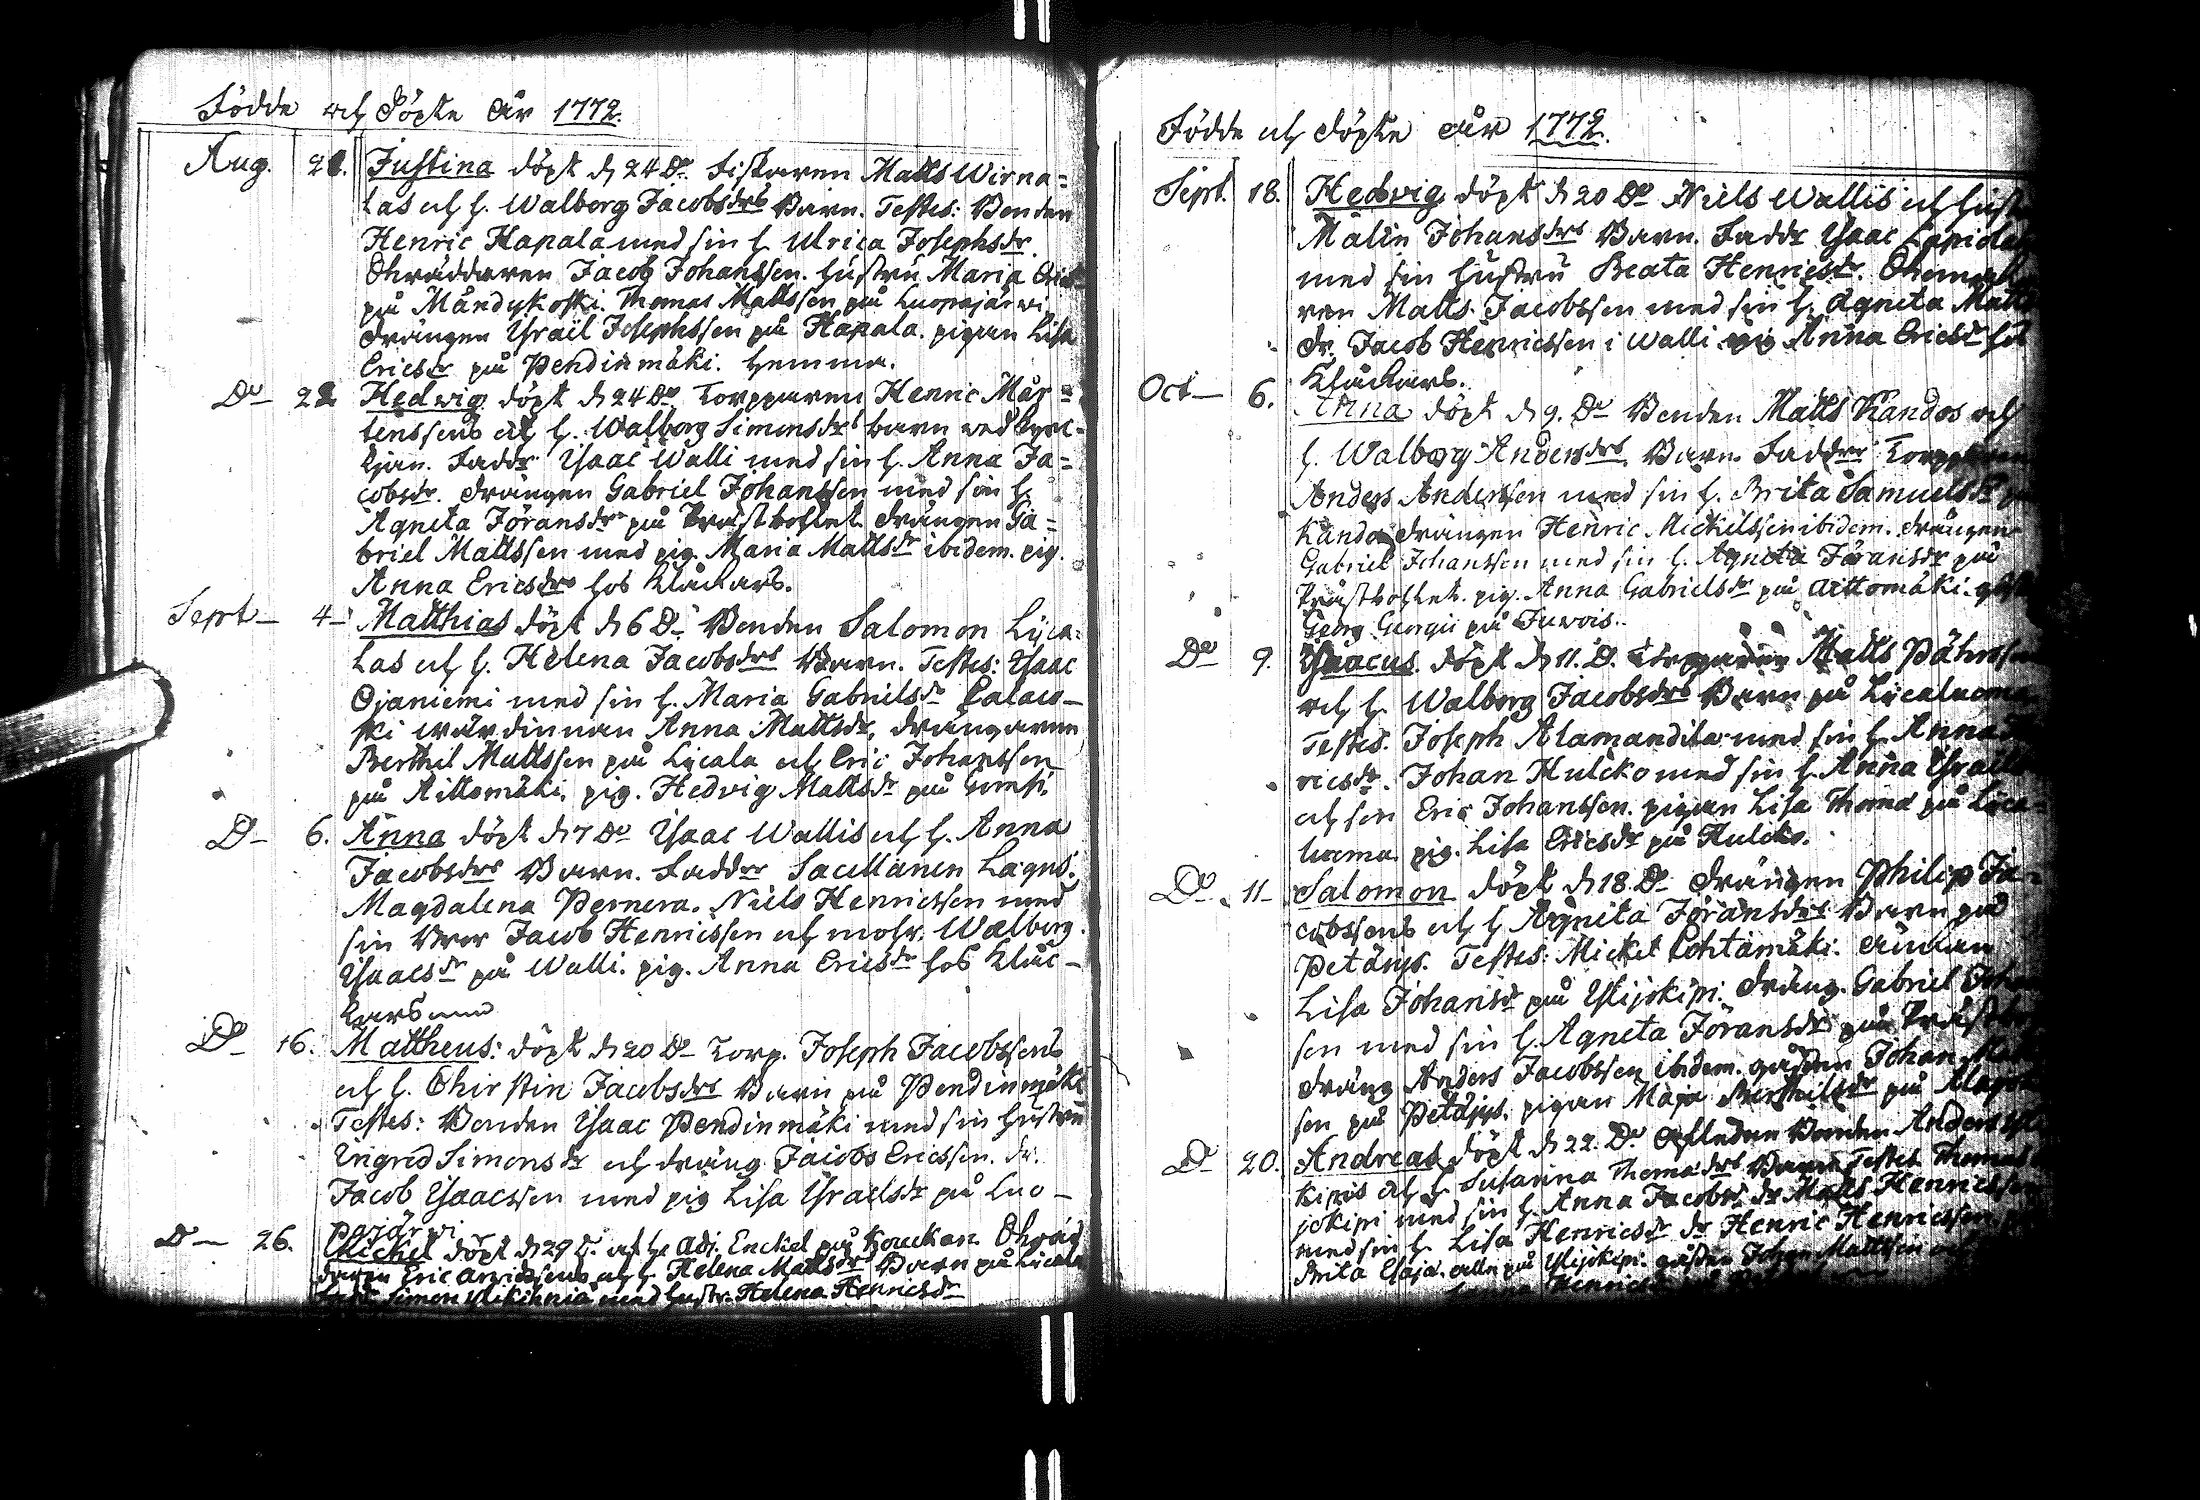 Födde och Döpte År 1772.
Aug. 21. Justina döpt d 24 Do. Fiskaren Matts Wirna=
las och h. Walborg Jacobsdrs Barn. Testes: Bonden
Henric Hapala med sin h. Ulrica Josephsdr.
Johanssen. Hustru Maria
på Mändykoski. Thomas Mattssen på Luopajärwi
drängen Israël Josephssen på Hapala. pigan Lisa
Ericsdr på Pendinmäki. hemma.
Do 22 Hedwig döpt d 24 Do. Torpparen Henric Mår=
tenssens och h. Walborg Simonsdrs barn wed
Faddr Isaac Walli med sin h. Anna Ja=
cobsdr. drängen Gabriel Johanssen med sin h.
Agneta Jöransdr på Prästbohlet. drängen Ga=
briel Mattssen med pig. Maria Mattsdr ibidem. pig.
Anna Ericsdr hos Klåckars.
Sept 4 Matthias döpt d 6 D. Bonden Salomon Lyca=
las och h. Helena Jacobsdrs Barn. Testes: Isaac
Ojaniemi med sin h. Maria Gabrielsdr
wärdinnan Anna Mattsdr, drängarne
Berthil Mattssen på Lycala och Eric Johanssen
på Aittomäki. pig. Hedvig Mattsdr på
D 6. Anna döpt d 7 Do Isaac Wallis och h. Anna
Jacobsdrs Barn. Faddrr Sacellanen Lagus.
Magdalena Pernera. Niels Henricssen med
sin Bror Jacob Henricssen och mohr. Walborg
Isaacsdr på Walli. pig. Anna Ericsdr hos Klåc-
kars
Do 16. Mattheus: döpt d 20 Do Torp. Joseph Jacobssens
och h. Chirstin Jacobsdrs Barn på Pendinmäki
Testes: Bonden Isaac Pendinmäki med sin hustru
Ingrid Simonsdr och dräng Jacob Ericssen. dr.
Jacob Isaacssen med pig Lisa Israelsdr på Luo-
pajärwi
D 26. Michel döpt d 29 D. af h. Adj. Enckel på
Eric och h. Helena Mattsdrs Barn på Lycala
Simon med hustr. Helena Henricsdr
Födde och döpte år 1772.
Sept. 18. Hedvig döpt d 20 Do Niels Wallis och hust
Malin Johansdrs Barn. Faddr Isaac
med sin hustru Beata Henricsdr.
ren Matts Jacobssen med sin h. Agneta Matts
dr. Jacob Henricssen i Walli pig Anna Ericsdr hos
Klåckars.
Oct 6. Anna döpt d 9. Do Bonden Matts Kandos och
h. Walborg Andersdrs Barn. Faddrr
Anders Anderssen med sin h. Brita Samuelsdr
Kando drängen Henric Mickelssen ibidem. drängen
Gabriel Johanssen med sin h. Agneta Jöransdr på
Prästbohlet. pig. Anna Gabrielsdr på Aittomäki.
Georg Georgii på Juwois.
Do 9. Isaacus. döpt d 11. D. Torpparen Matts
och h. Walborg Jacobsdrs Barn på Lycaluoma
Testes. Joseph Alamandila med sin h. Anna
ricsdr. Johan Hulcko med sin h. Anna
och son Eric Johanssen. pigan Lisa Thomæ på Lyca-
luoma. pig. Lisa Ericsdr på Hulcko.
Do 11 Salomon döpt d 18. D. drängen Philip Ja-
cobssens och h Agneta Jöransdrs Barn på
Petäys. Testes: Mickel Lohtamäki.
Lisa Johansdr på Ylijokipi. dräng. Gabriel
sen med sin h. Agneta Jöransdr på
dräng Anders Jacobssen ibidem. gossen Johan
sen på Petäjys. pigan Maja Berthilsdr på
D 20. Andreas döpt d 22. D. Afledne Bonden Anders
kipis och h Susanna Thomædrs Barn Testes Thomas
jokipi med sin h. Anna Jacobsdr. dr Matts Henricssen
med sin h. Lisa Henricsdr dr Henric Henricssen
Brita på Ylijokipi. gossen Johan Mattssen